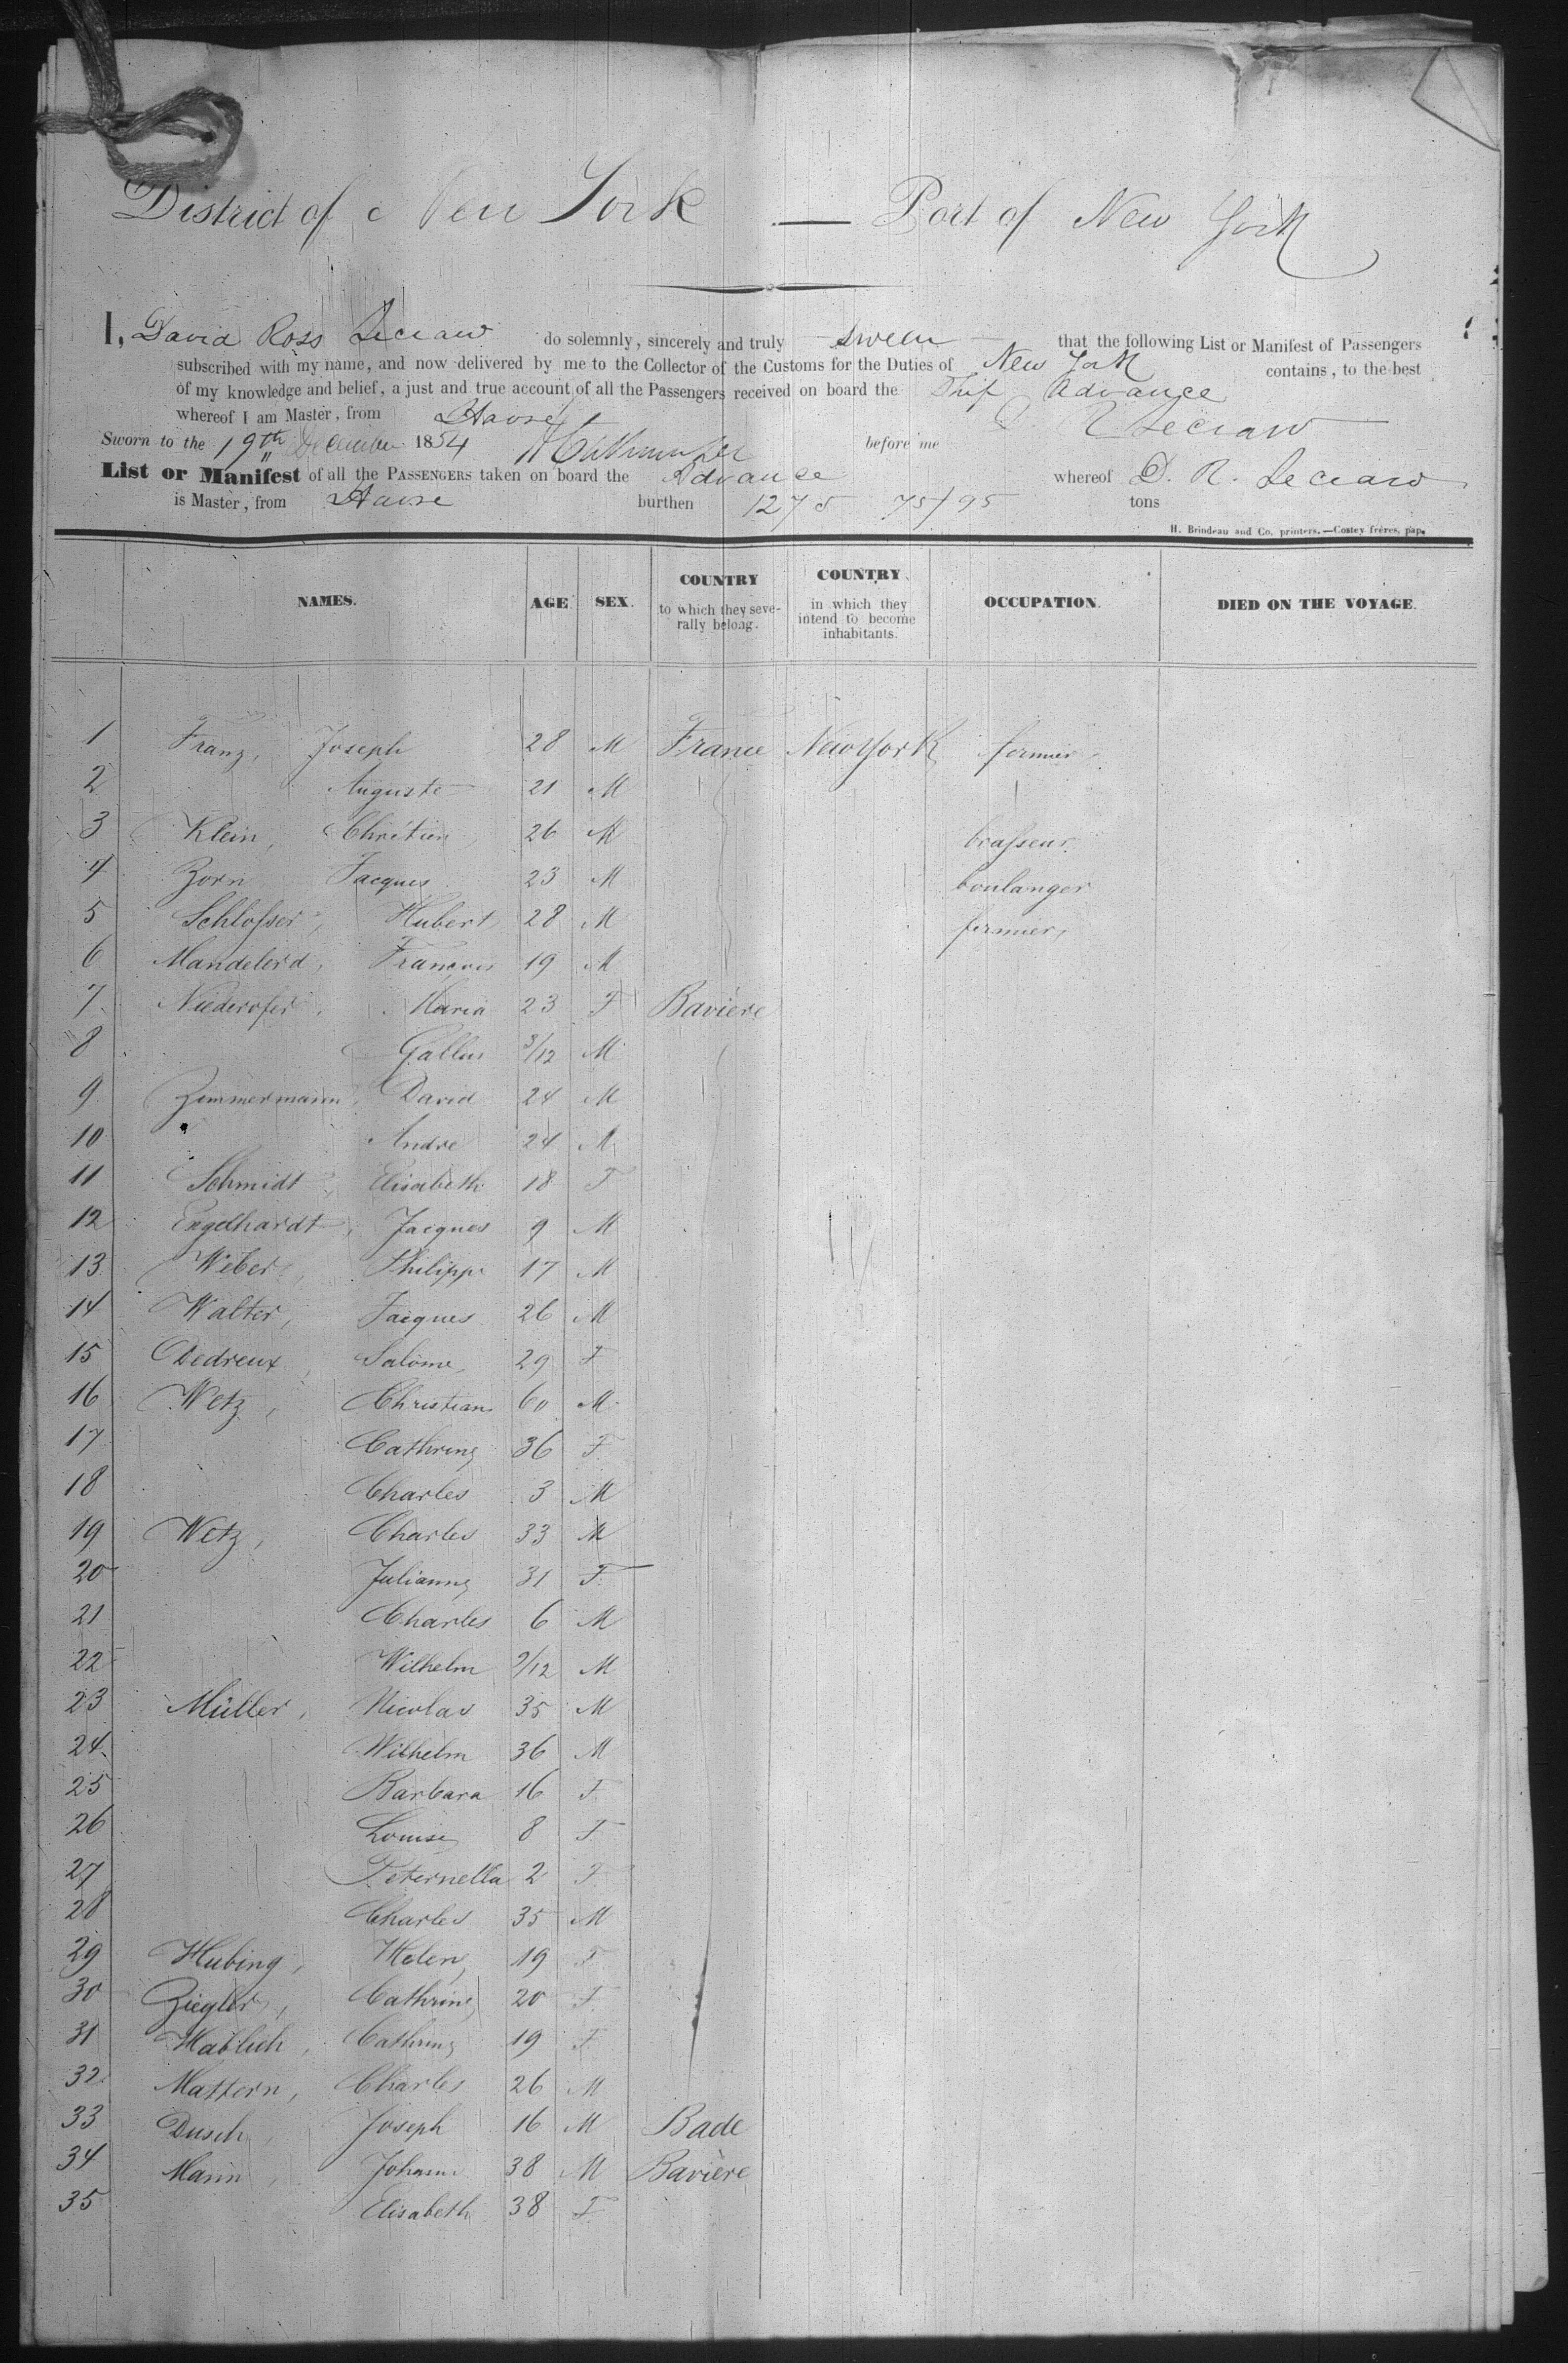 District of New York — Port of New York
I, David Ross Lecraw do solemnly, sincerely and truly swear that the following List or Manifest of Passengers
subscribed with my name, and now delivered by me to the Collector of the Customs for the Duties of New York contains, to the best
of my knowledge and belief, a just and true account of all the Passengers received on board the Ship Advance
whereof I am Master, from Havre D. R. Lecraw
Sworn to the 19th December 1854 before me
List or Manifest of all the PASSENGERS taken on board the Advance whereof D. R. Lecraw
is Master, from Havre burthen 1275 75/95 tons
H. Brindeau and Co, printers.—Costey frères, pap.
NAMES. AGE SEX. COUNTRY to which they seve-rally belong. COUNTRY in which they intend to become inhabitants. OCCUPATION. DIED ON THE VOYAGE.
1 Franz, Joseph 28 M France New York fermier
2 Auguste 21 M
3 Klein, Chrétien 26 M brasseur
4 Zorn Jacques 23 M boulanger
5 Schlosser, Hubert 28 M fermier
6 Mandelerd, François 19 M
7 Niederofer, Maria 23 F Bavière
8 Gallus 3/12 M
9 Zimmermann, David 24 M
10 Andre 24 M
11 Schmidt, Elisabeth 18 F
12 Engelhardt, Jacques 9 M
13 Weber, Philippe 17 M
14 Walter, Jacques 26 M
15 Dedreux, Salome 29 F
16 Wetz, Christian 60 M
17 Cathrine 36 F
18 Charles 3 M
19 Wetz, Charles 33 M
20 Julianne 31 F
21 Charles 6 M
22 Wilhelm 9/12 M
23 Müller, Nicolas 35 M
24 Wilhelm 36 M
25 Barbara 16 F
26 Louise 8 F
27 Peternella 2 F
28 Charles 35 M
29 Hubing, Helene 19 F
30 Ziegler, Cathrine 20 F
31 Hablich, Cathrine 19 F
32 Mattern, Charles 26 M
33 Dusch, Joseph 16 M Bade
34 Mann, Johann 38 M Bavière
35 Elisabeth 38 F